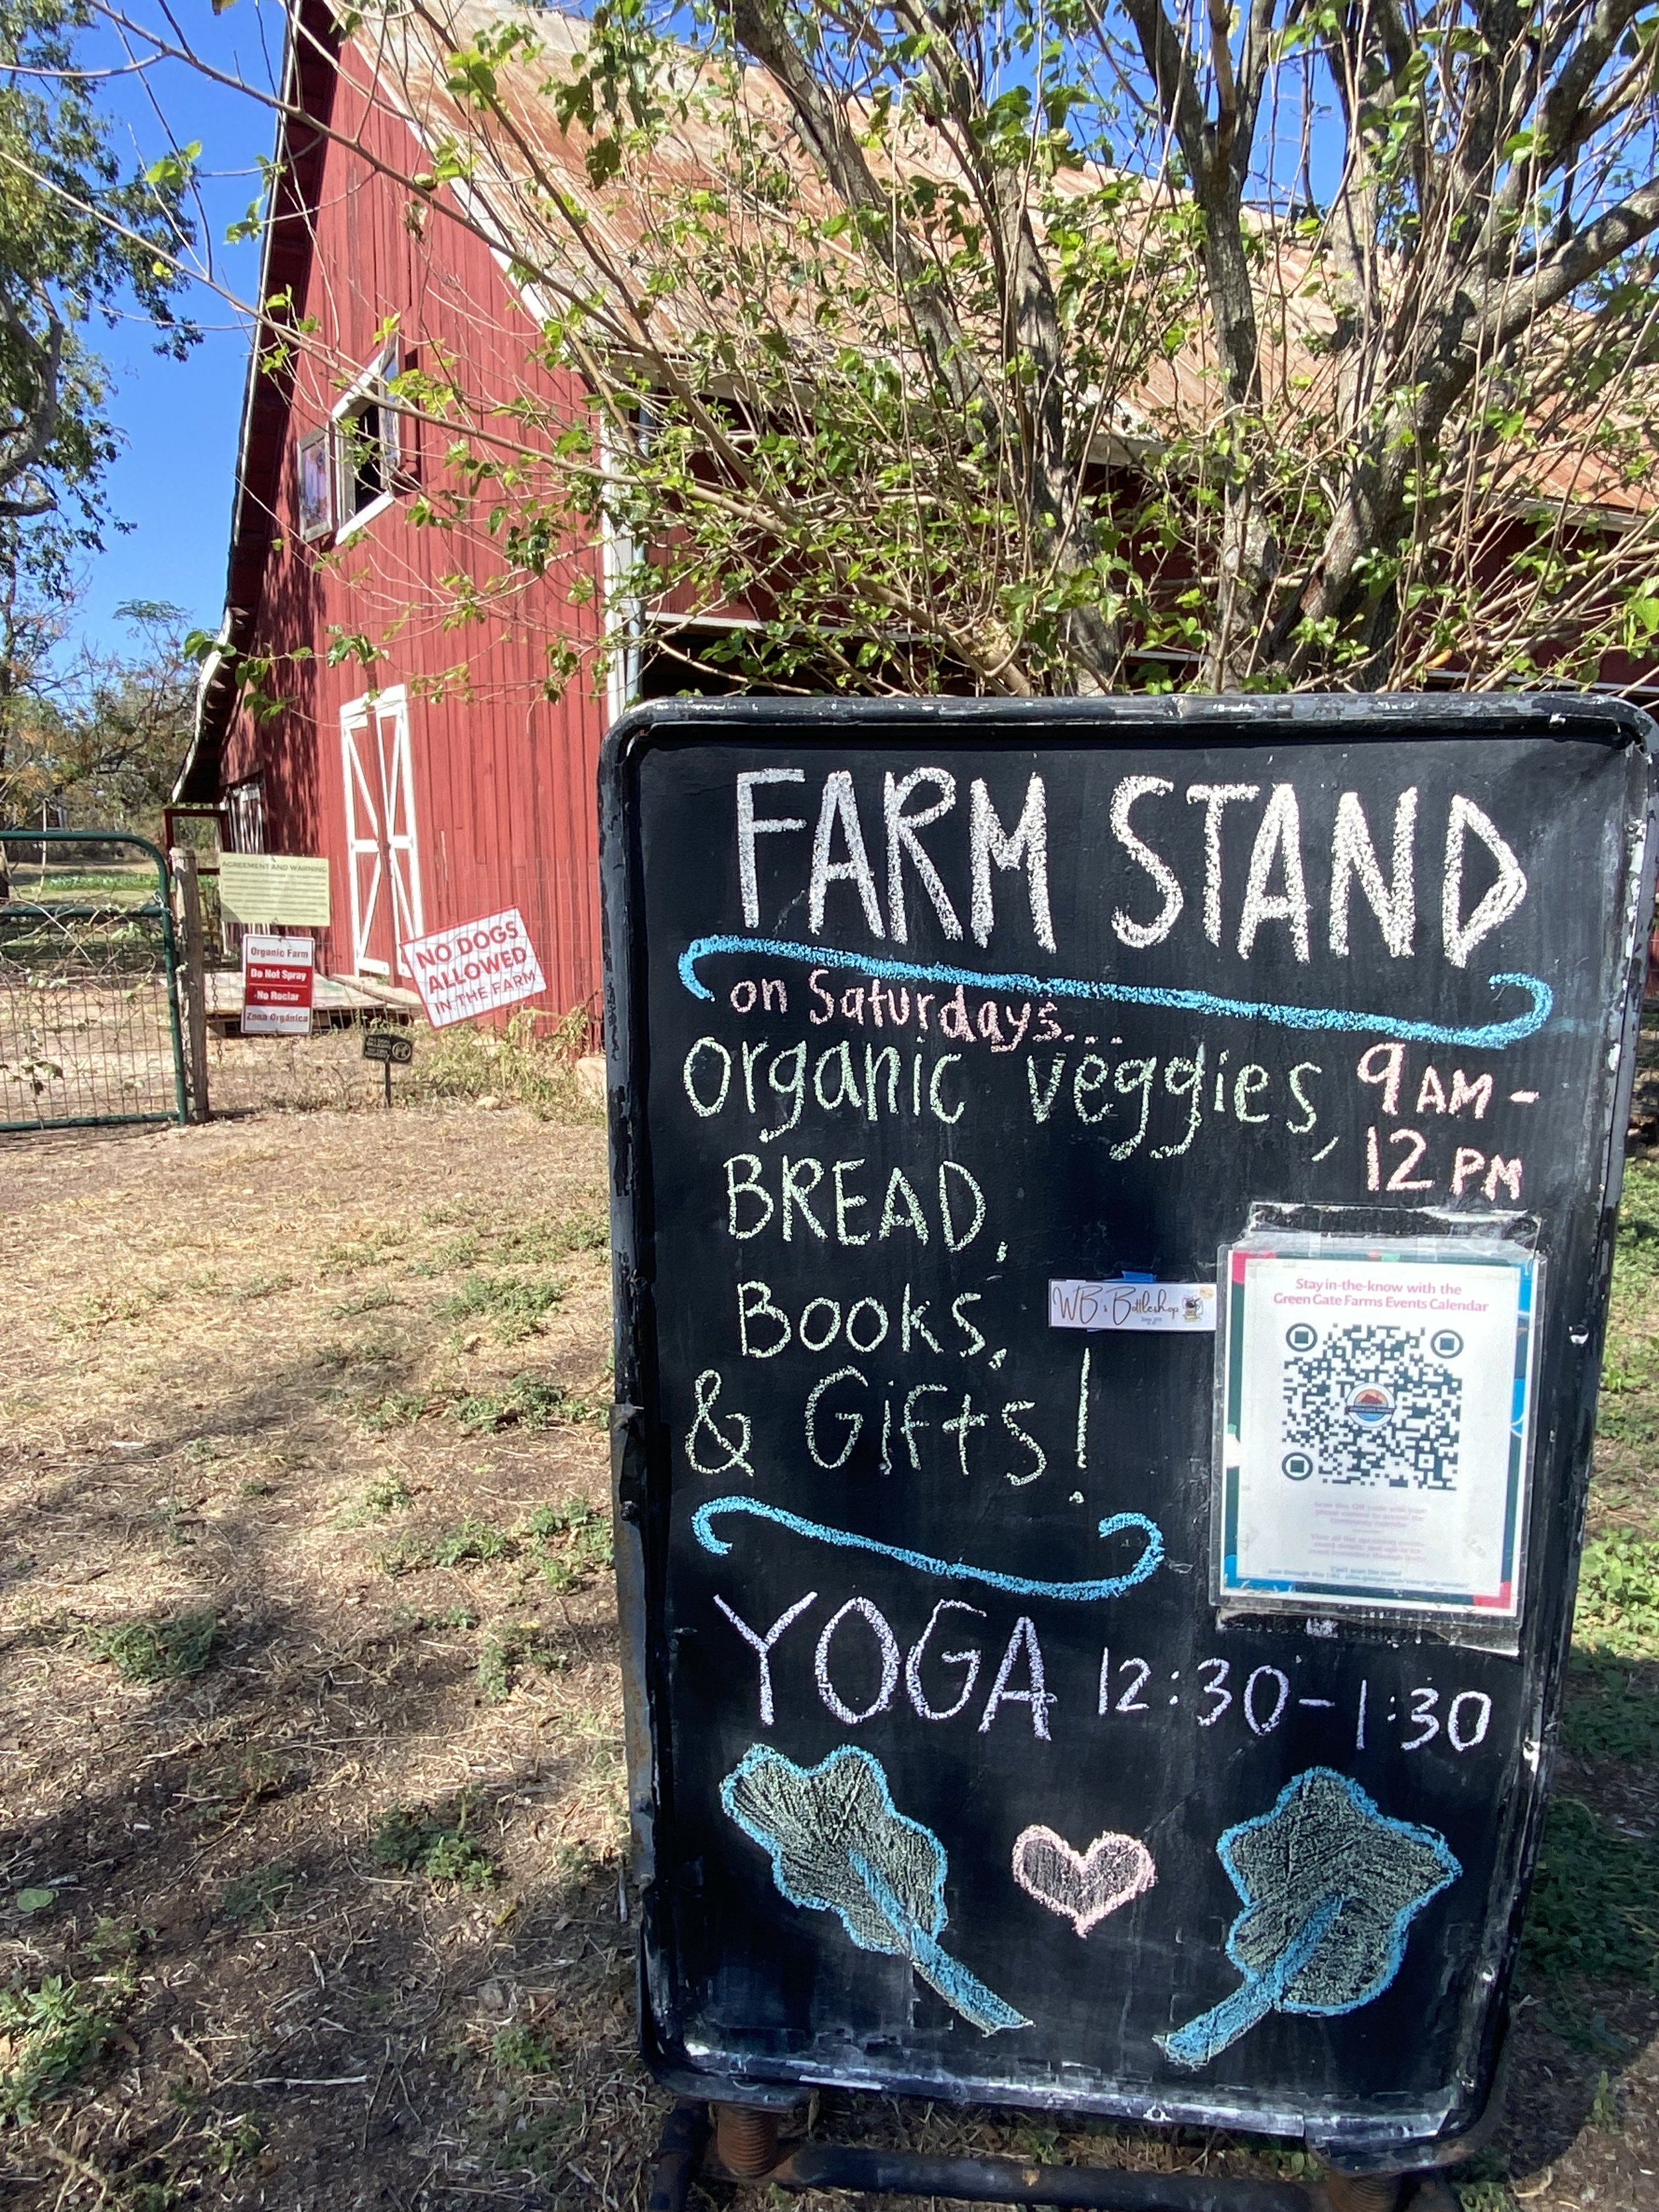 FARM STAND
on Saturdays...
Organic veggies,
9AM-
12 PM
BREAD,
Books,
& Gifts!
YOGA 12:30-1:30
WB's Bottleshop
Stay in-the-know with the
Green Gate Farms Events Calendar
AGREEMENT AND WARNING
Organic Farm
Do Not Spray
No Rociar
Zona Orgánica
NO DOGS
ALLOWED
IN THE FARM